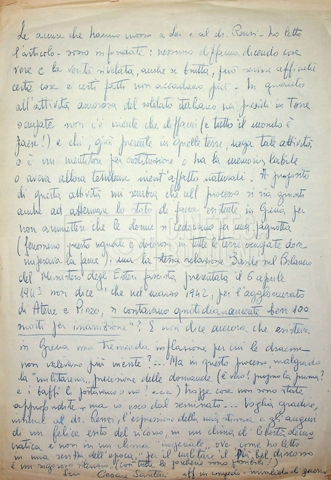 Le accuse che hanno mosso a lei e al dr. Renzi - ho letto
l'articolo - sono infondate: nessuno diffama dicendo cose
vere e la verità rivelata, anche se brutta, può servire affinché
certe cose e certi fatti non accadano più. In quanto
all'attività amorosa del soldato italiano nei presidi in terre
occupate non c'è niente che diffami (e tutto il mondo è
paese!) e chi, già presente in quelle terre, nega tale attività
o è un mentitore per costituzione o ha la memoria labile
o aveva allora tendenze nient'affatto naturali. A proposito
di questa attività mi sembra che nel processo si sia giunti
anche ad attenuare lo stato di fame esistente in Grecia per
non ammettere che le donne si cedevano per una pagnotta
(fenomeno questo usuale e doloroso in tutte le terre occupate dove
imperava la fame), ma la stessa relazione sul Bilancio
del Ministero degli Esteri fascista presentata il 6 aprile
1943 non dice che nell'anno 1942, per l'agglomerato
di Atene e Pireo, si contavano quotidianamente ben 100
morti per inanizione? E non dice ancora che esisteva
in Grecia una tremenda inflazione per cui le dracme
non valevano più niente?... Ma in questo processo malgrado
la militaresca precisione delle domande (e chi? prima la
e i baffi li portavano o no? ...) troppe cose non sono state
approfondite - ma io esco dal seminato... Voglia gradire,
insieme al dr. Renzi, l'espressione della mia stima e gli auguri
di un felice esito del ricorso, in un clima di libertà democratica
e non in un clima imperiale, ove come ho letto
in una scritta dell'epoca: per il militare il più bel discorso
è un rigoroso silenzio (con tutte le porcherie sono possibili!)
Suo Cesare